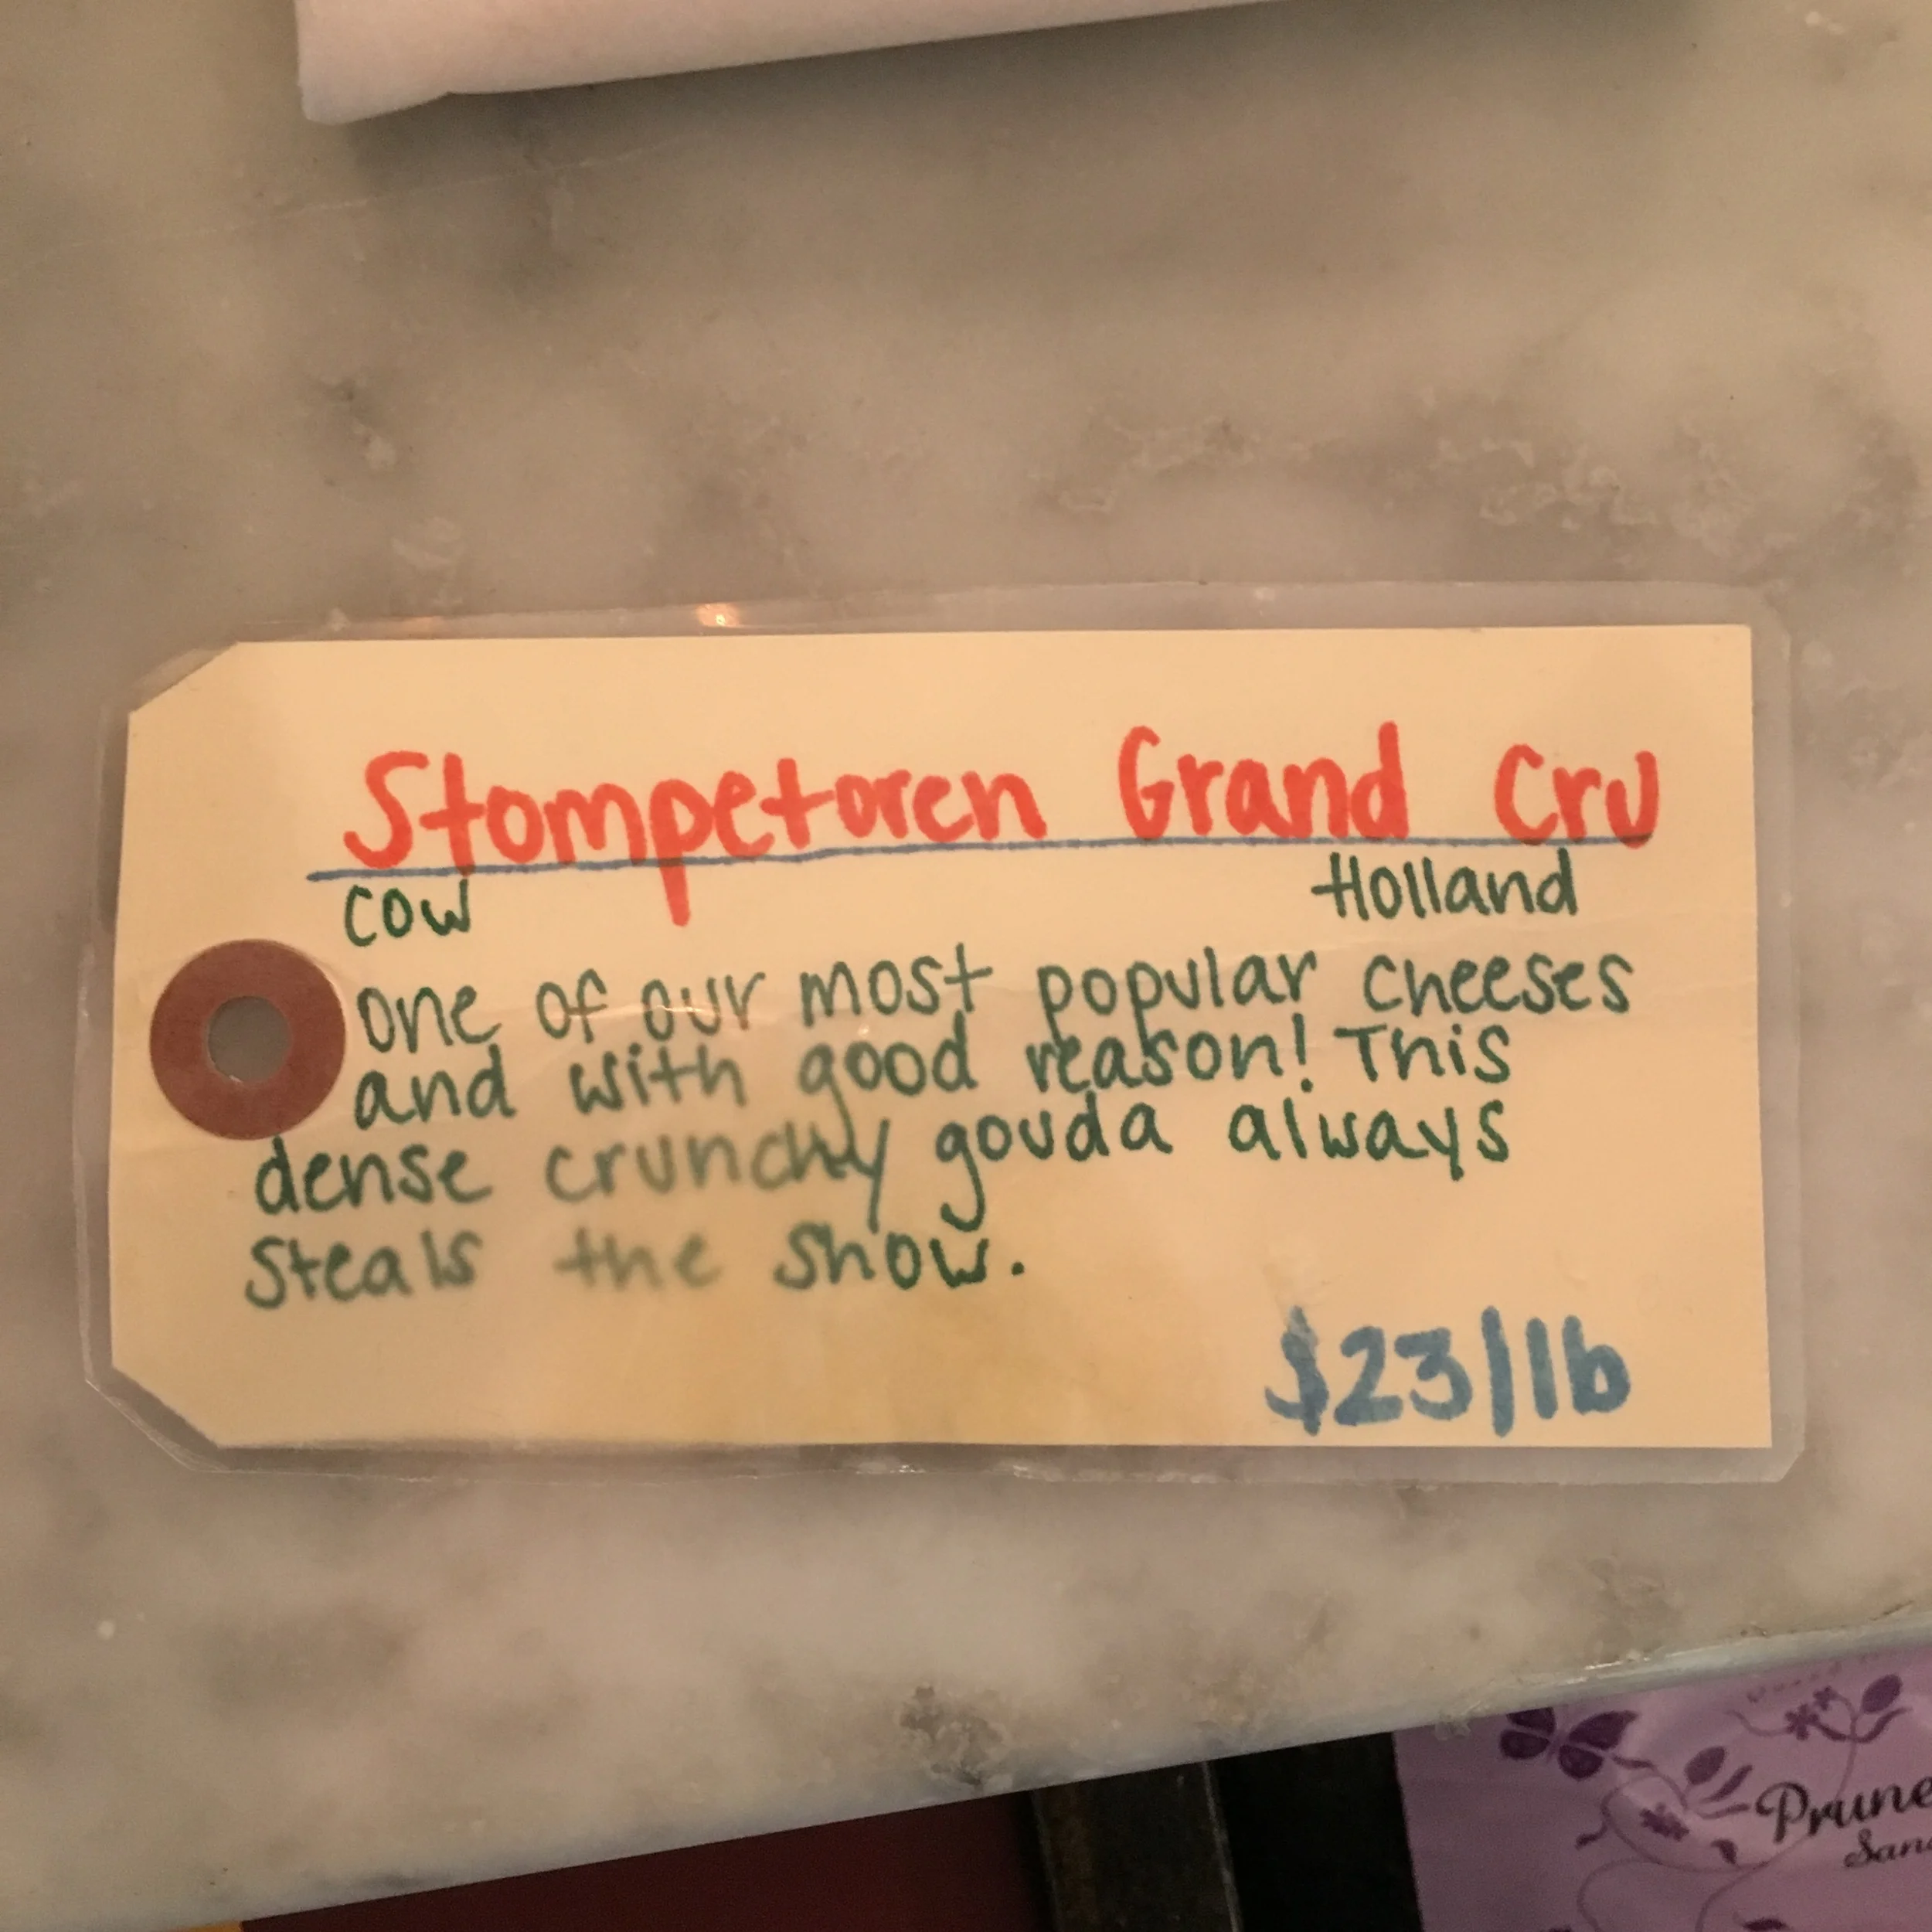 Stompetoren Grand Cru
cow Holland
one of our most popular cheeses
and with good reason! This
dense crunchy gouda always
steals the show.
$23/lb
Prune